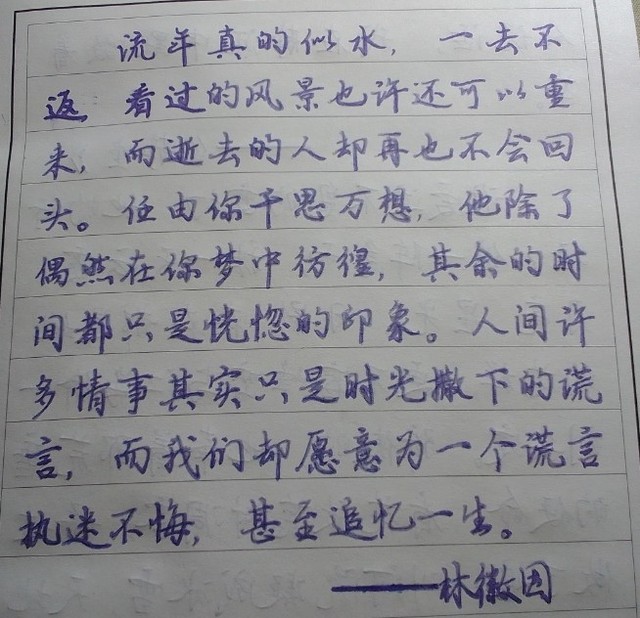 流年真的似水，一去不
返，看过的风景也许还可以重
来，而逝去的人却再也不会回
头。任由你千思万想，他除了
偶然在你梦中彷徨，其余的时
间都只是恍惚的印象。人间许
多情事其实只是时光撒下的谎
言，而我们却愿意为一个谎言
执迷不悔，甚至追忆一生。
——林徽因